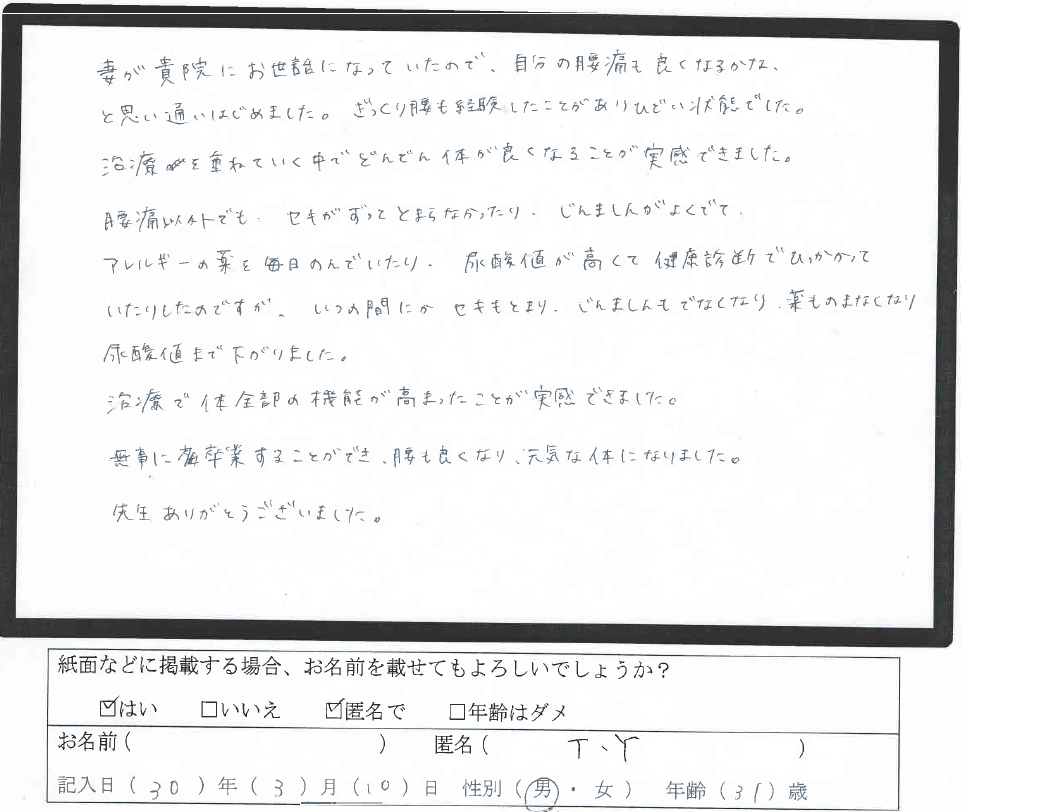 妻が貴院にお世話になっていたので、自分の腰痛も良くなるかな、
と思い通いはじめました。ぎっくり腰も経験したことがありひどい状態でした。
治療を重ねていく中でどんどん体が良くなることが実感できました。
腰痛以外でも、セキがずっととまらなかったり、じんましんがよくでて、
アレルギーの薬を毎日のんでいたり、尿酸値が高くて健康診断でひっかかって
いたりしたのですが、いつの間にかセキもとまり、じんましんもでなくなり、薬ものまなくなり
尿酸値まで下がりました。
治療で体全部の機能が高まったことが実感できました。
無事に卒業することができ、腰も良くなり、元気な体になりました。
先生ありがとうございました。
紙面などに掲載する場合、お名前を載せてもよろしいでしょうか？
☑はい □いいえ ☑匿名で □年齢はダメ
お名前( ) 匿名( T、Y )
記入日(30)年(3)月(10)日 性別(男・女) 年齢(31)歳